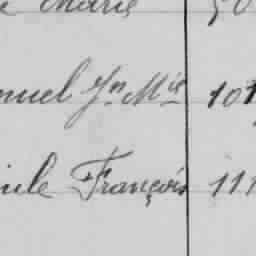 Marie 50
nuel Jn Mie 101
ile François 111